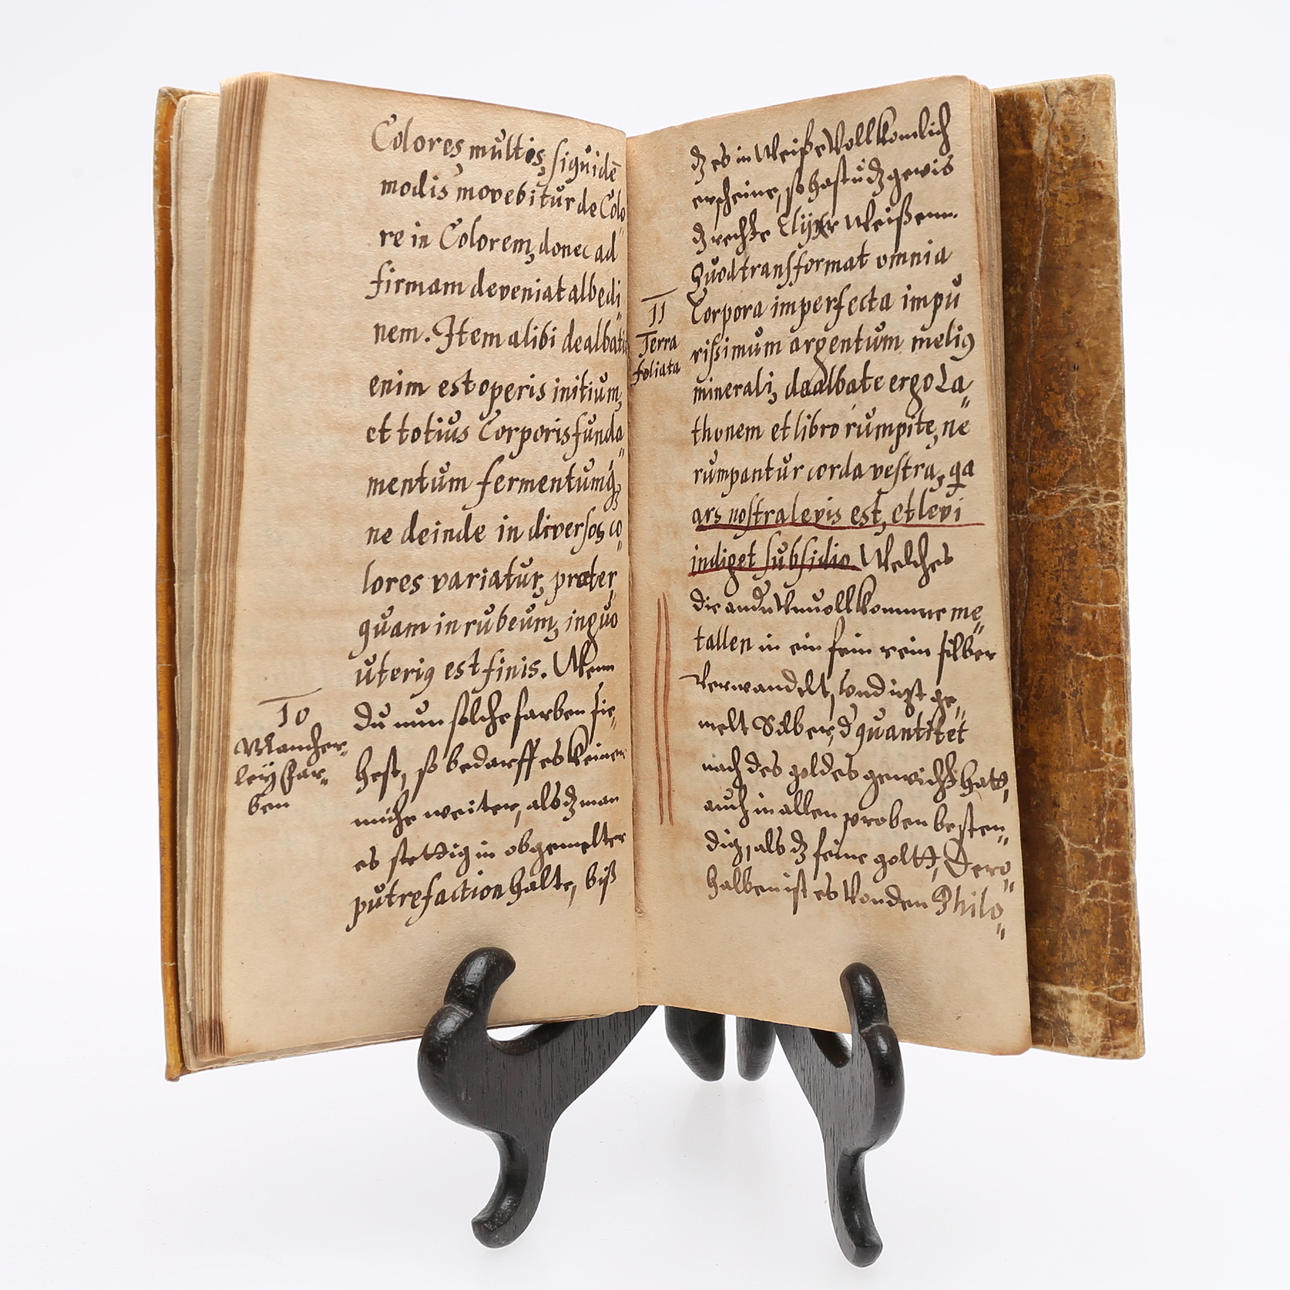 Colores multos, siquidē
modis movebitur de Colo
re in Colorem, donec ad
firmam deveniat albedi
nem. Item alibi dealbati
enim est operis initium,
et totius Corporis funda
mentum fermentumq,
ne deinde in diversos co
lores variatur, præter
quam in rubeum, in quo
uterig est finis. Wenn
du nun solche farben sie
hest, so bedarff es keiner
mühe weiter, als dz man
es stettig in obgemelter
putrefaction halte, biß
10
Mancher
ley far
ben
dz es in Weiße Vollkomlich
erscheine, so hastu dz gewis
dz rechte Elyxr Weißenn.
Quod transformat omnia
Corpora imperfecta in pu
rissimum argentum melig
minerali, dealbate ergo La
thonem et libro rumpite, ne
rumpantur corda vestra, qa
ars nostra levis est, et levi
indiget subsidio. Welches
die andn Unvollkommne me
tallen in ein fein rein silber
Verwandelt, Vnd ge
melt Silber, d quantitet
nach des goldes gewicht hatt,
auch in allen proben besten
dig, als dz feine goltt, Dero
halben ist es Von den Philo
11
Terra
foliata